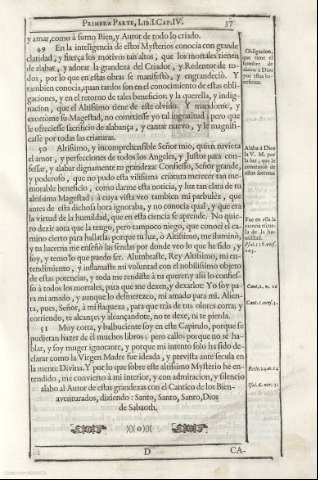 PRIMERA PARTE, LIB. I. CAP. IV. 37
y amar, como à sumo Bien, y Autor de todo lo criado.
49 En la inteligencia de estos Mysterios conocia con grande
claridad, y fuerça los motivos tan altos, que los mortales tienen
de alabar, y adorar la grandeza del Criador, y Redentor de to-
dos, por lo que en estas obras se manifestò, y engrandeciò. Y
tambien conocia, quan tardos son en el conocimiento de estas obli-
gaciones, y en el retorno de tales beneficios; y la querella, y indig-
nacion, que el Altissimo tiene de este olvido. Y mandòme, y
exortòme su Magestad, no cometiesse yo tal ingratitud; pero que
le ofreciesse sacrificio de alabança, y cantar nuevo, y le magnifi-
casse por todas las criaturas.
50 Altissimo, y incomprehensible Señor mio, quien tuviera
el amor, y perfecciones de todos los Angeles, y Justos para con-
fessar, y alabar dignamente tu grandeza: Confiesso, Señor grande,
y poderoso, que no pudo esta vilissima criatura merecer tan me-
morable beneficio, como darme esta noticia, y luz tan clara de tu
altissima Magestad: à cuya vista veo tambien mi parbulèz, que
antes de esta dichosa hora ignoraba, y no conocia qual, y que era
la virtud de la humildad, que en esta ciencia se aprende. No quie-
ro dezir aora que la tengo, pero tampoco niego, que conocì el ca-
mino cierto para hallarla; porque tu luz, ò Altissimo, me iluminò,
y tu lucerna me enseñò las sendas por donde veo lo que he sido, y
soy, y temo lo que puedo ser. Alumbraste, Rey Altissimo, mi en-
tendimiento, y inflamaste mi voluntad con el nobilissimo objeto
de estas potencias, y toda me rendiste à tu querer; y assi lo confies-
so à todos los mortales, para que me dexen, y dexarlos: Yo soy pa-
ra mi amado, y aunque lo desmerezco, mi amado para mi. Alien-
ta, pues, Señor, à mi flaqueza, para que tràs de tus olores corra; y
corriendo, te alcançe; y alcançandote, no te dexe, ni te pierda.
51 Muy corta, y balbuciente soy en este Capitulo, porque se
pudieran hazer de èl muchos libros; pero callo, porque no sè ha-
blar, y soy muger ignorante, y porque mi intento solo ha sido de-
clarar como la Virgen Madre fue ideada, y prevista ante secula en
la mente Divina. Y por lo que sobre este altissimo Mysterio he en-
tendido, mi convierto à mi interior, y con admiracion, y silencio
alabo al Autor de estas grandezas con el Cantico de los Bien-
aventurados, diziendo: Santo, Santo, Santo, Dios
de Sabaoth.
D
CA-
Obligacion,
que tiene el
hombre de
alabar à Dios
por estas o-
beneficios.
Alaba à Dios
la V. M. por
la luz, que le
comunicò de
estos secretos.